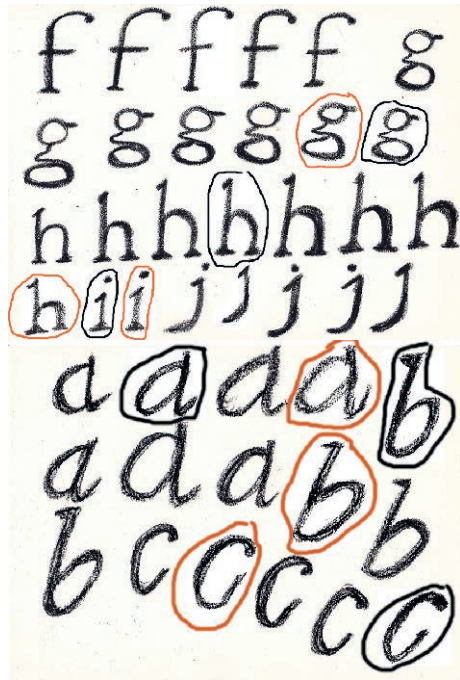 f f f f f g
g g g g g g
h h h h h h h
h i i j j j j j
a a a a b
a a a b b
b c c c c c